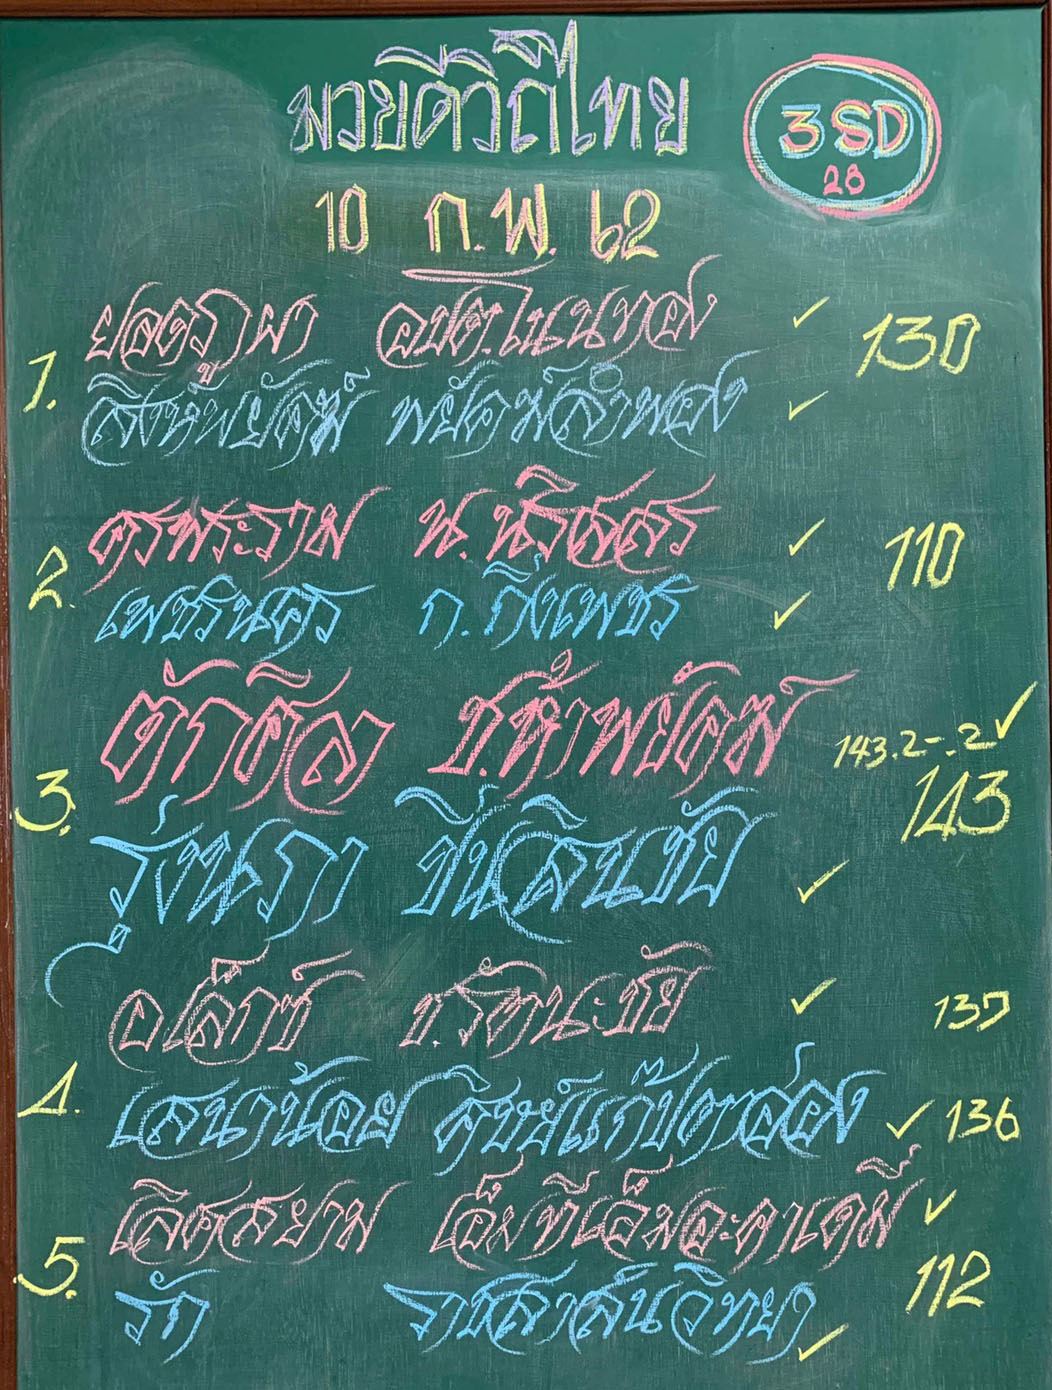 มวยดีวิถีไทย
3SD
28
10 ก.พ. 62
1.
ยอดภูผา อบต.โนนทอง ✓ 130
สิงห์พยัคฆ์ พยัคฆ์ลำพอง ✓
2.
ศรพระราม น. ✓ 110
เพชรนคร ก.กิ่งเพชร ✓
3.
ช.ห้าพยัคฆ์ 143.2-.2 ✓
143
รุ่งนภา ✓
4.
อเล็กซ์ ช.รัตนะชัย ✓ 137
เสนาน้อย ศิษย์แก๊ปท่าฉลอง ✓ 136
5.
เลิศสยาม เอ็มทีเอ็มอะคาเดมี่ ✓
112
รัก ราชสาส์นวิทยา ✓